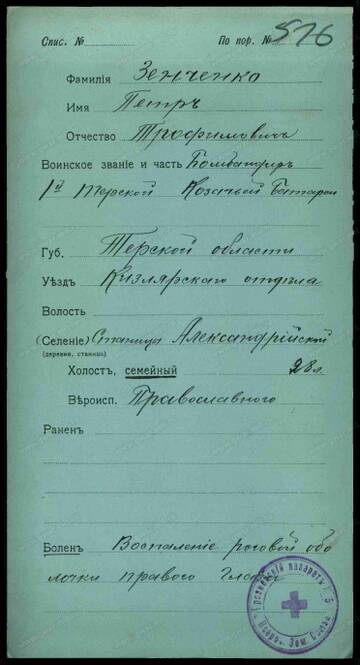 Спис. № По пор. № 576
Фамилія Зенченко
Имя Петръ
Отчество Трофимовичъ
Воинское званіе и часть Бомбардиръ
1й Терской Козачьей Баттареи
Губ. Терской области
Уѣздъ Кизлярскаго отдѣла
Волость
(Селеніе) Станица Александрійской
(деревня, станица)
Холостъ, семейный 28 л
Вѣроисп. Православнаго
Раненъ
Боленъ Воспаленіе роговой обо
лочки праваго глаза
Грозненскій лазаретъ № 5
Всерос. Зем. Союза